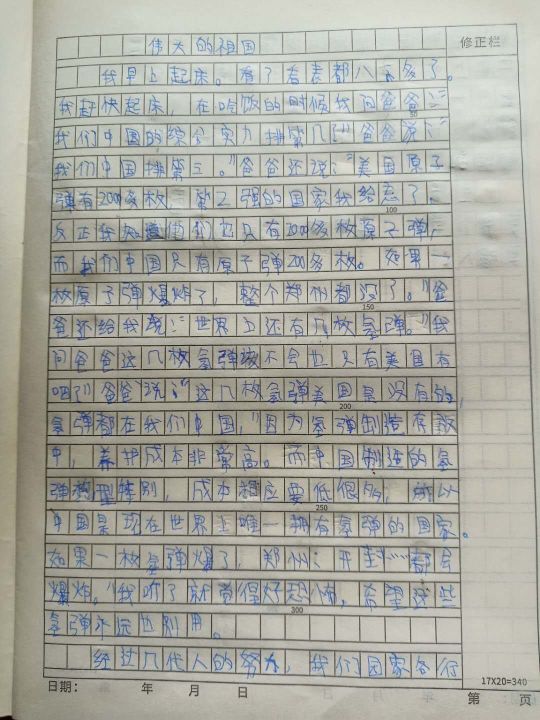 伟大的祖国
修正栏
我早上起床。看了看表都八点多了。
我赶快起床 在吃饭的时候我问爸爸:“
我们中国的综合实力排第几?”爸爸说:“
我们中国排第三。”爸爸还说:“美国原子
弹有2000多枚, 第2强的国家我给忘了。
反正我知道他们也只有2000多枚原子弹,
而我们中国只有原子弹200多枚。 如果一
枚原子弹爆炸了, 整个郑州都没了。”爸
爸还给我说:“世界上还有几枚氢弹。”我
问爸爸这几枚氢弹该不会也只有美国有
吧?”爸爸说:“这几枚氢弹美国是没有的,
氢弹都在我们中国,”因为氢弹制造存放
中, 养护成本非常高。而中国制造的氢
弹构型特别, 成本相应要低很多, 所以
中国是现在世界上唯一拥有氢弹的国家。
如果一枚氢弹爆了, 郑州、开封……都会
爆炸。”我听了就觉得好恐怖。希望这些
氢弹永远也别用。
经过几代人的努力, 我们国家各行
50
100
150
200
250
300
17X20=340
日期: 年 月 日 第 页